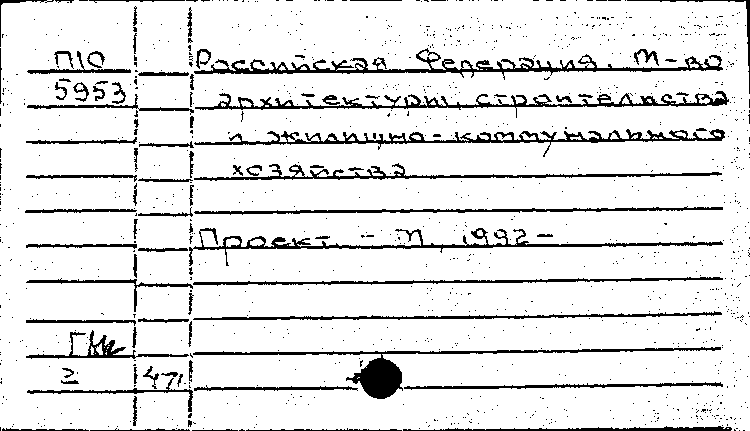 П10 Российская Федерация. М-во
5953 архитектуры, строительства
и жилищно-коммунального
хозяйства
Проект. - М., 1992 -
2 471